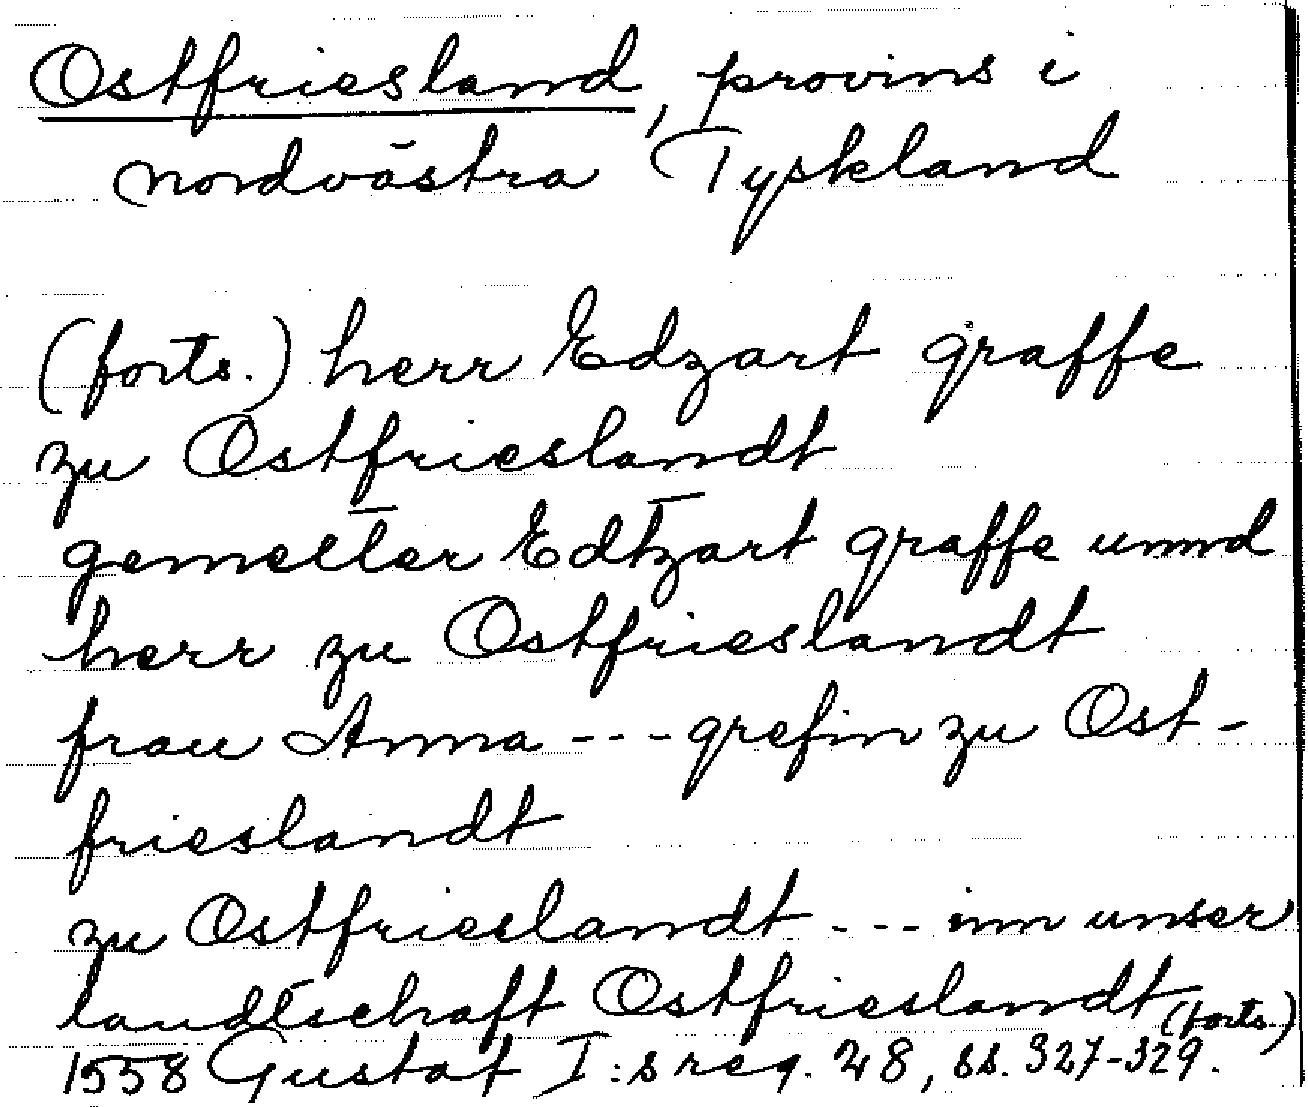 Ostfriesland, provins i
nordvästra Tyskland
(forts.) herr Edzart graffe
zu Ostfrieslandt
gemelter Edtzart graffe unnd
herr zu Ostfrieslandt
frau Anna --- grefin zu Ost-
frieslandt
zu Ostfrieslandt --- inn unser
landtschaft Ostfrieslandt (forts.)
1558 Gustaf I:s reg. 28, ss. 327-329.